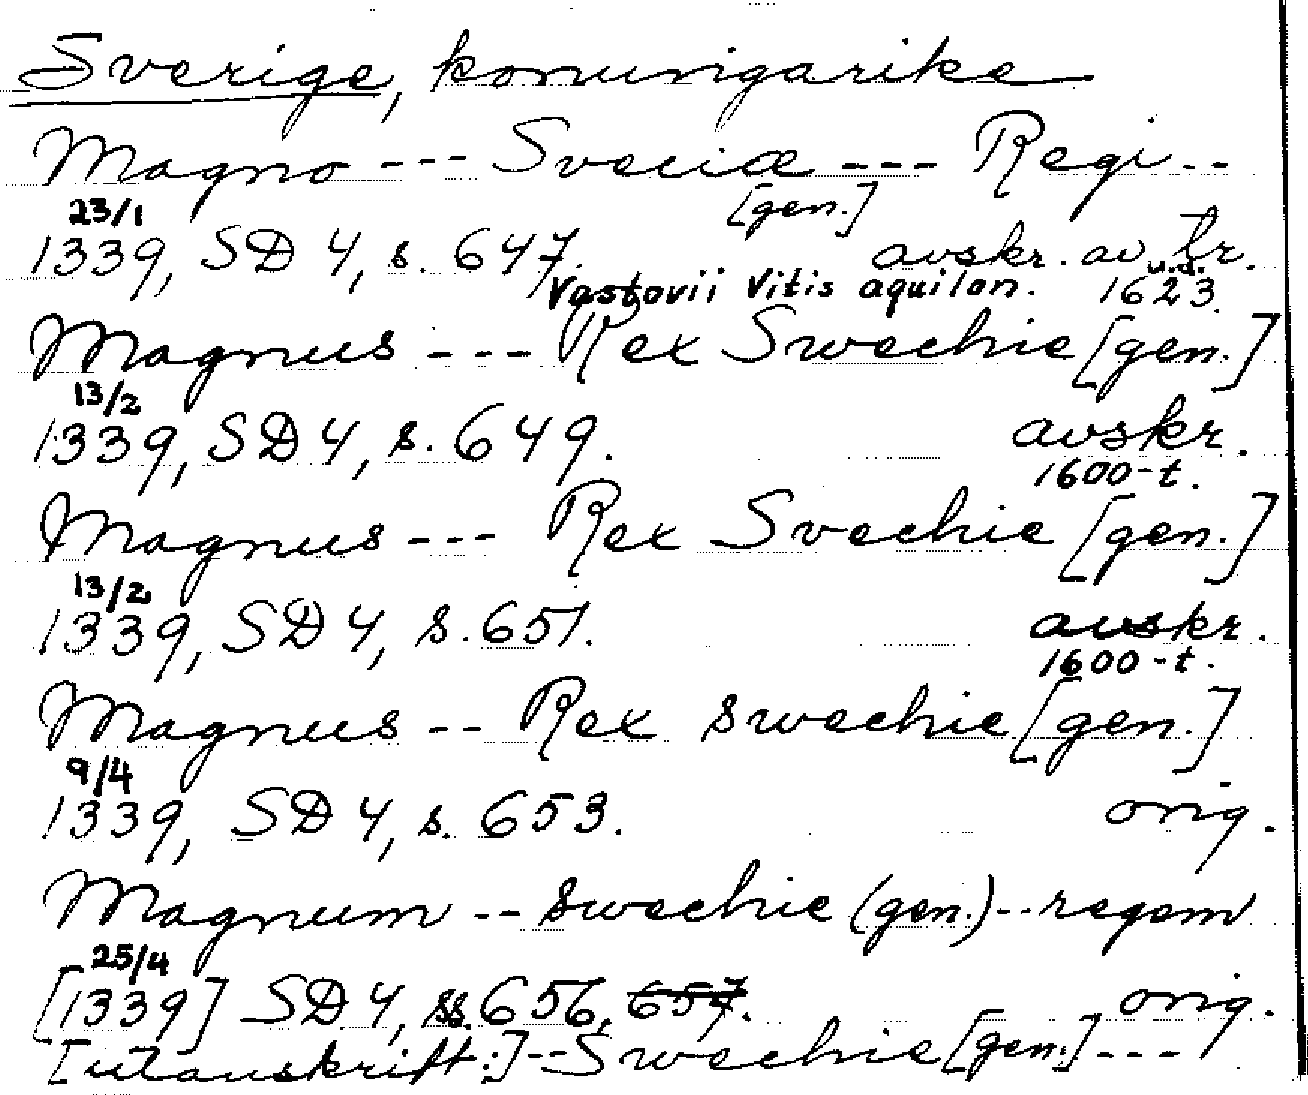 Sverige, konungarike
Magno --- Sveciæ --- Regi --
[gen.]
23/1
1339, SD 4, s. 647. avskr. av tr. u.d.
Vastovii Vitis aquilon. 1623.
Magnus --- Rex Swechie [gen.]
13/2
1339, SD 4, s. 649. avskr.
1600-t.
Magnus --- Rex Svechie [gen.]
13/2
1339, SD 4, s. 651. avskr.
1600-t.
Magnus -- Rex swechie [gen.]
9/4
1339, SD 4, s. 653. orig.
Magnum -- swechie (gen.) -- regem
25/4
[1339] SD 4, s. 656, 657. orig.
[utanskrift:] -- Swechie [gen.] ---